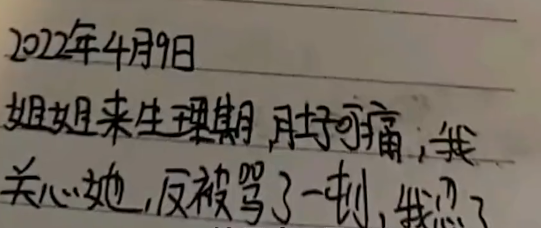 2022年4月9日
姐姐来生理期,肚子可痛,我
关心她,反被骂了一